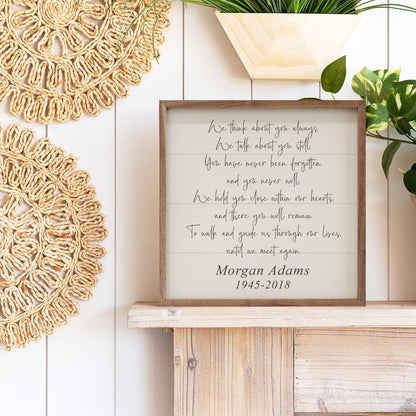 We think about you always.
We talk about you still.
You have never been forgotten,
and you never will.
We hold you close within our hearts,
and there you will remain.
To walk and guide us through our lives,
until we meet again.
Morgan Adams
1945-2018